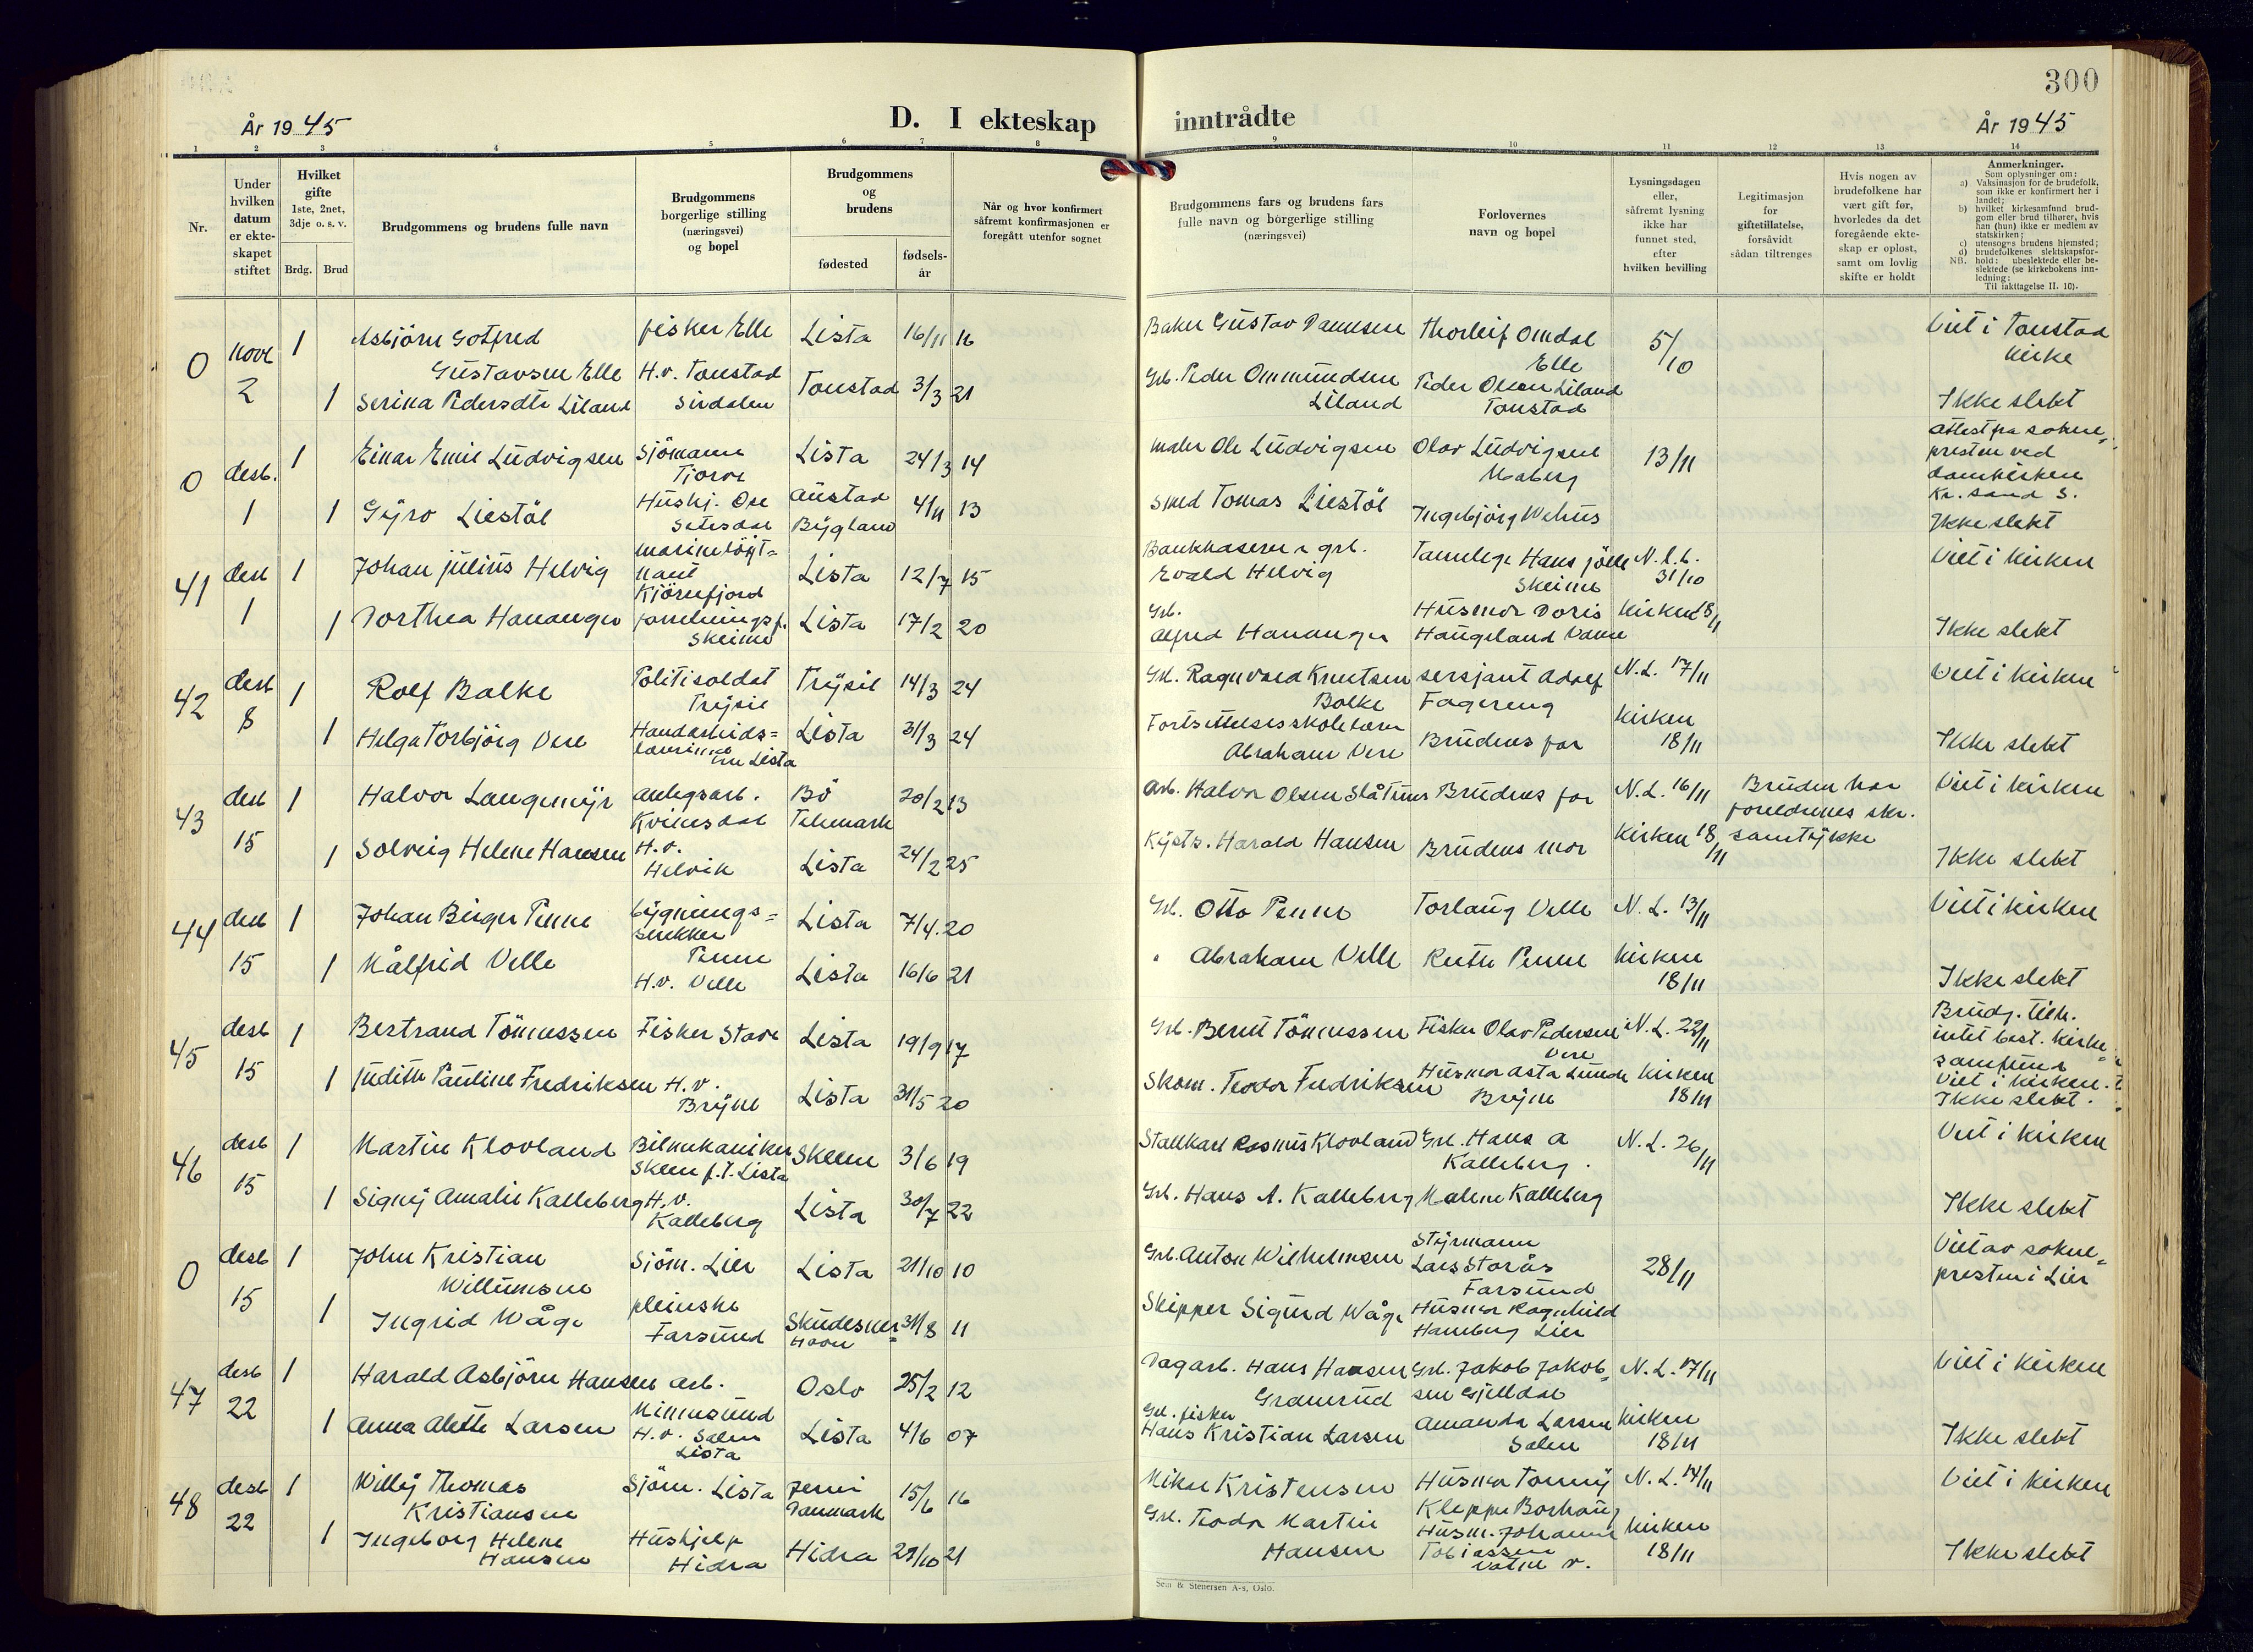 300
År 1945
D. I ekteskap
inntrådte
År 1945
1 2 3 4 5 6 7 8 9 10 11 12 13 14
Nr.
Under hvilken datum er ekte-skapet stiftet
Hvilket gifte 1ste, 2net, 3dje o. s. v.
Brdg. Brud
Brudgommens og brudens fulle navn
Brudgommens borgerlige stilling (næringsvei) og bopel
Brudgommens og brudens
fødested
fødsels-år
Når og hvor konfirmert såfremt konfirmasjonen er foregått utenfor sognet
Brudgommens fars og brudens fars fulle navn og borgerlige stilling (næringsvei)
Forlovernes navn og bopel
Lysningsdagen eller, såfremt lysning ikke har funnet sted, efter hvilken bevilling
Legitimasjon for giftetillatelse, forsåvidt sådan tiltrenges
Hvis nogen av brudefolkene har vært gift før, hvorledes da det foregående ekte-skap er opløst, samt om lovlig skifte er holdt
Anmerkninger.
Som oplysninger om:
a) Vaksinasjon for de brudefolk, som ikke er konfirmert her i landet;
b) hvilket kirkesamfund brud-gom eller brud tilhører, hvis han (hun) ikke er medlem av statskirken;
c) utensogns brudens hjemsted;
d) brudefolkenes slektskapsfor-hold: ubeslektede eller be-slektede (se kirkebokens inn-ledning:
NB.
Til iakttagelse II. 10).
0 novb 2 1 Asbjörn Gotfred Gustavsen Elle fisker Elle Lista 16/11 16 Baker Gustav Danielsen Thorleif Omdal Elle 5/10 Viet i Tonstad kirke
1 Serina Pedersdtr Liland H.v. Tonstad Sirdalen Tonstad 3/3 21 Grb. Peder Ommundsen Liland Peder Olsen Liland Tonstad Ikke slekt
0 desb. 1 1 Einar Emil Ludvigsen Sjömann Tjorve Lista 24/3 14 maler Ole Ludvigsen Olav Ludvigsen Maberg 13/11 Attest fra sokne-presten ved domkirken Kr.sand S.
1 Gyro Liestöl Hushj. Ose Setesdal Austad Bygland 4/11 13 Smed Tomas Liestöl Ingebjörg Wehus Ikke slekt
41 desb 1 1 Johan Julius Helvig marinelöyt=nant Kjörrefjord Lista 12/7 15 Bankkaserer & grb. Evald Helvig Tannlege Hans Jölle Skeime N.l.b. 31/10 Viet i kirken
1 Dorthea Hananger forretningsf. Skeime Lista 17/2 20 Grb. Alfred Hananger Husmor Doris Haugeland Vanse Kirken 18/11 Ikke slekt
42 desb 8 1 Rolf Balke Politisoldat Trysil Trysil 14/3 24 Grb. Ragnvald Knutsen Balke sersjant Adolf Fagereng N.L. 17/11 Viet i kirken
1 Helga Torbjörg Vere Handarbeids=lærerinne Lista Lista 31/3 24 Fortsettelsesskolelærer Abraham Vere Brudens far Kirken 18/11 Ikke slekt
43 desb 15 1 Halvor Langemyr anlegsarb. Kvinesdal Bö Telemark 20/2 13 Arb. Halvor Olsen Slåtines Brudens far N.L. 16/11 Bruden har foreldrenes skr. samtykke Viet i kirken
1 Solveig Helene Hansen H.v. Helvik Lista 24/2 25 Kystb. Harald Hansen Brudens mor Kirken 18/11 Ikke slekt
44 desb 15 1 Johan Birger Penne bygnings=snekker Penne Lista 7/4. 20 Grb. Otto Penne Torlaug Velle N.L. 13/11 Viet i kirken
1 Målfrid Velle H.v. Velle Lista 16/6 21 " Abraham Velle Ruth Penne Kirken 18/11 Ikke slekt
45 desb 15 1 Bertrand Tönnessen Fisker Stave Lista 19/9 17 Grb. Bernt Tönnessen Fisker Olav Pedersen Vere N.L. 22/11 Brudg. tilh. intet best. kirke=samfund Viet i kirken.
1 Judith Pauline Fredriksen H.v. Bryne Lista 31/5 20 Skom. Teodor Fredriksen Husmor Asta Lunde Bryne Kirken 18/11 Ikke slekt.
46 desb 15 1 Martin Klovland Bilmekaniker Skien f.t. Lista Skien 3/6 19 Stallkarl Rasmus Klovland Grb. Hans A Kalleberg. N.L. 26/11 Viet i kirken
1 Signy Amalie Kalleberg H.v. Kalleberg Lista 30/7 22 Grb. Hans A. Kalleberg Malene Kalleberg Ikke slekt
0 desb 15 1 John Kristian Willumsen Sjöm. Lier Lista 21/10 10 Grb. Anton Wilhelmsen Styrmann Lars Storås Farsund 28/11 Viet av sokne=presten i Lier
1 Ingrid Våge pleierske Farsund Skudesnes=havn 31/8 11 Skipper Sigurd Våge Husmor Ragnhild Hamborg Lier
47 desb 22 1 Harald Asbjörn Hansen arb. Minnesund Oslo 25/2 12 Dagarb. Hans Hansen Gramrud Grb. Jakob Jakob=sen Gjelldal N.L. 17/11 Viet i kirken
1 Anna Alette Larsen H.v. Salen Lista Lista 4/6 07 Grb. fisker Hans Kristian Larsen Amanda Larsen Salen Kirken 18/11 Ikke slekt
48 desb 22 1 Willy Thomas Kristiansen Sjöm. Lista Danmark 15/6 16 Kristensen Husmor Tonny Kleppe Borhaug N.L. 14/11 Viet i kirken
1 Ingeborg Helene Hansen Hushjelp Hidra Hidra 29/10 21 Grb. Teodor Martin Hansen Husm. Johanne Tobiassen Vatne v. Kirken 18/11 Ikke slekt
Sem & Stenersen A-s, Oslo.